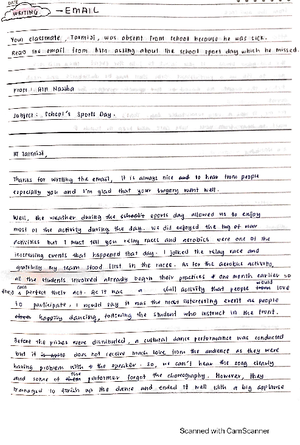 WRITING - EMAIL
Your classmate, Tasmisi, was absent from school because he was sick.
Read the email from him asking about the school sport day which he missed.
From : Ain Nasiha
Subject : School's Sports Day.
Hi Tasmisi,
Thanks for writing the email, it is always nice to hear from people
especially you and I'm glad that your surgery went well.
Well, the weather during the sports day allowed us to enjoy
most of the activity during the day. We did enjoyed the tug of war
activities but I must tell you relay races and aerobics were one of the
interesting events that happened that day. I joined the relay race and
gratefully my team stood first in the races. As for the aerobic activity,
all the students involved already begin their practices a one month earlier so
they can perfect their act. As it was activity that people would love
to participate. I would say it was the most interesting event as people
happily dancing, following the student who instruct in the front.
Before the prizes were distributed, a cultural dance performance was conducted
but it does not receive much love from the audience as they were
having problem with the speaker. So, we can't hear the song clearly
and some of the performer forgot the choreography. However, they
managed to finish up the dance and ended it well with a big applause
Scanned with CamScanner